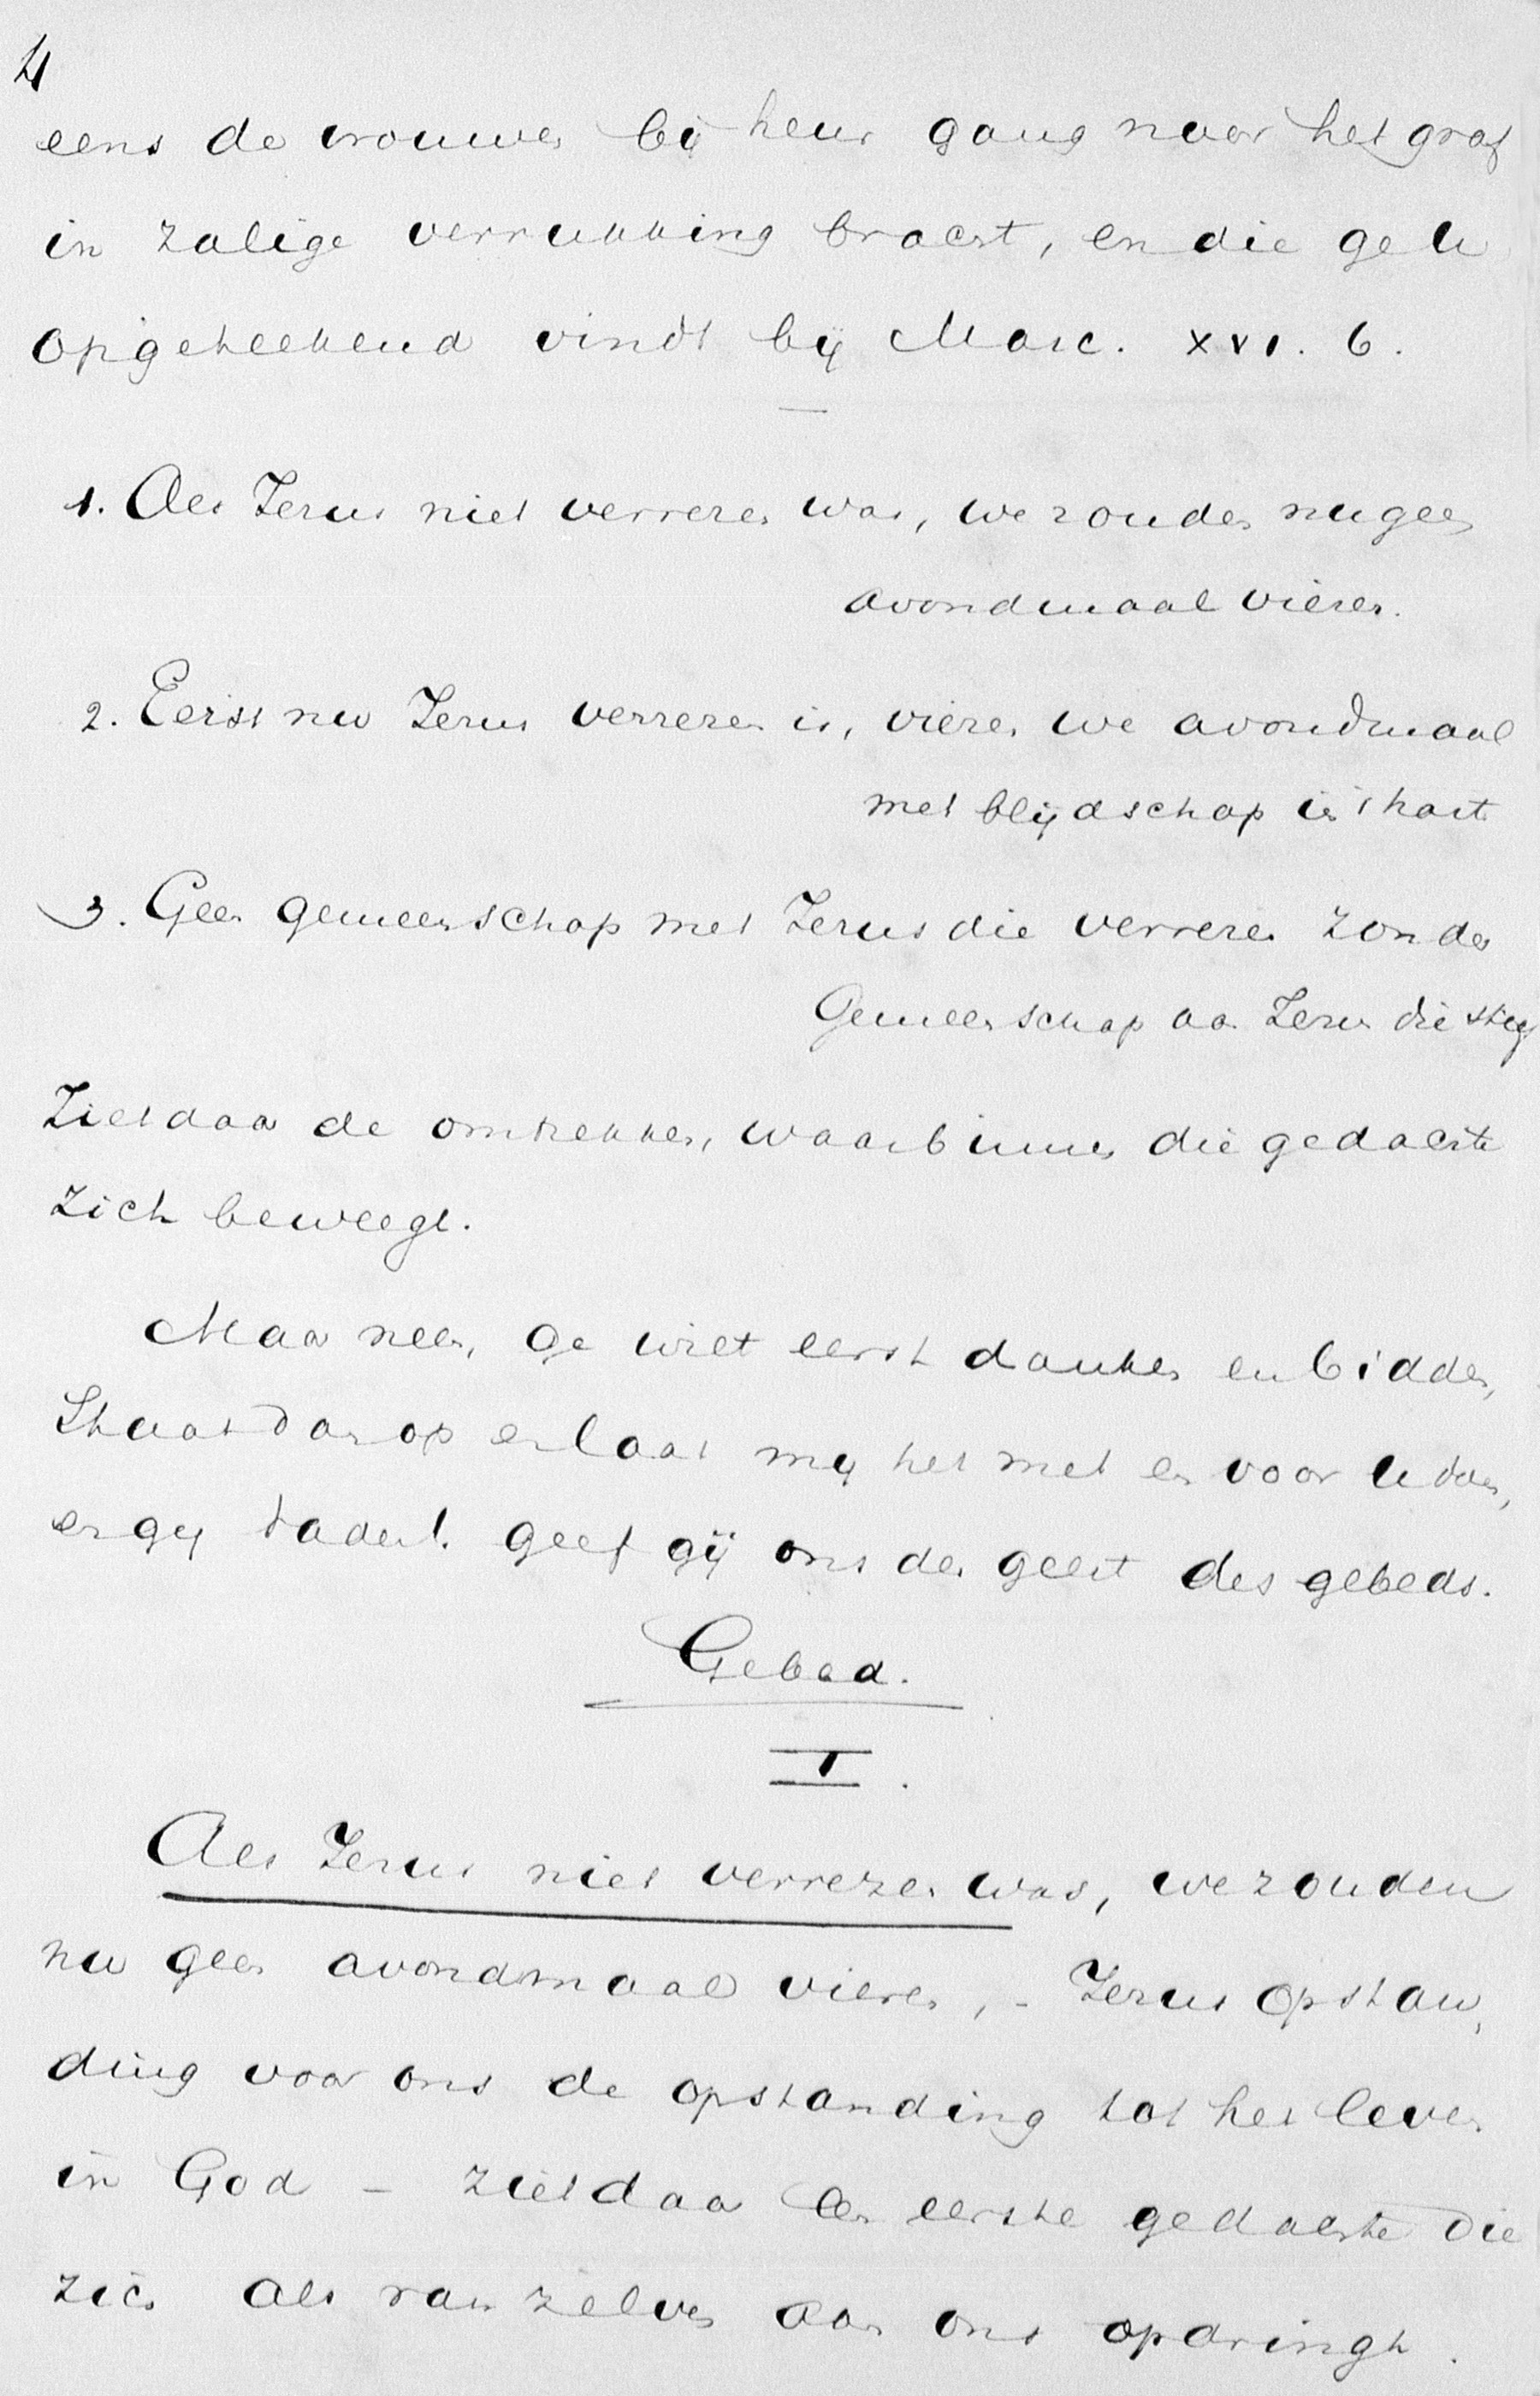 4
eens de vrouwen bij heur gang naar het graf
in zalige verrukking bracht, en die ge u
opgeteekend vindt bij Marc. XVI. 6.
1. Als Jezus niet verrezen was, we zouden nu geen
avondmaal vieren.
2. Eerst nu Jezus verrezen is, vieren we avondmaal
met blijdschap in 't hart
3. Geen gemeenschap met Jezus die verrezen zonder
Gemeenschap aan Jezus die stierf
Ziet daar de omtrekken, waarbinnen die gedachte
zich beweegt.
Maar neen, ge wilt eerst danken en bidden,
Staat dan op en laat mij het met en voor u doen,
en gij Vader! geef gij ons den geest des gebeds.
Gebed.
I.
Als Jezus niet verrezen was, we zouden
nu geen avondmaal vieren, - Jezus opstan,
ding voor ons de opstanding tot het leven
in God - ziet daar een eerste gedachte die
zich als van zelven aan ons opdringt.